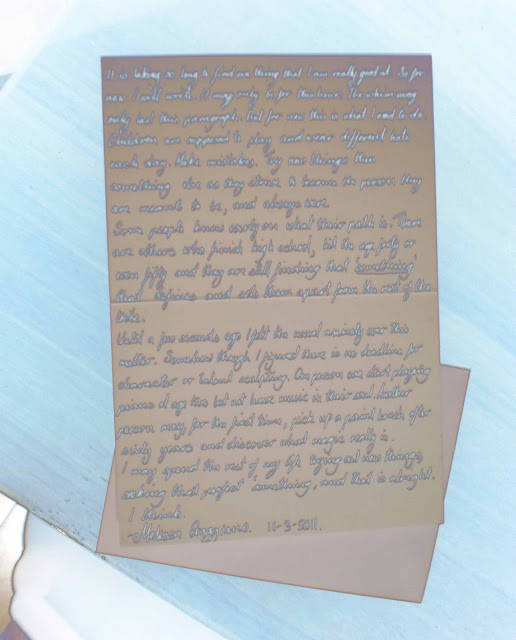 It is taking so long to find one thing that I am really good at. So for
now I will write. It may only be for this hour. The whim may
only last this paragraph. But for now this is what I need to do.
Children are supposed to play and wear different hats
each day. Make mistakes. Try new things then
something else as they strive to become the person they
are meant to be, and always were.
Some people know early on what their path is. There
are others who finish high school, hit the age forty or
even fifty and they are still finding that 'something'
that defines and sets them apart from the rest of the
tribe.
Until a few seconds ago I felt the usual anxiety over this
matter. Somehow though I figured there is no deadline for
character or talent sculpting. One person can start playing
piano at age two but not have music in their soul. Another
person may, for the first time, pick up a paint brush after
sixty years and discover what magic really is.
I may spend the rest of my life trying out new things,
seeking that perfect 'something', and that is alright.
I think.
- 16-3-2011.